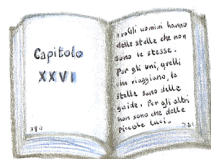 Capitolo
XXVI
280
gli uomini hanno
delle stelle che non
sono le stesse.
Per gli uni, quelli
che viaggiano, le
stelle sono delle
guide. Per gli altri
non sono che delle
piccole luci.
281